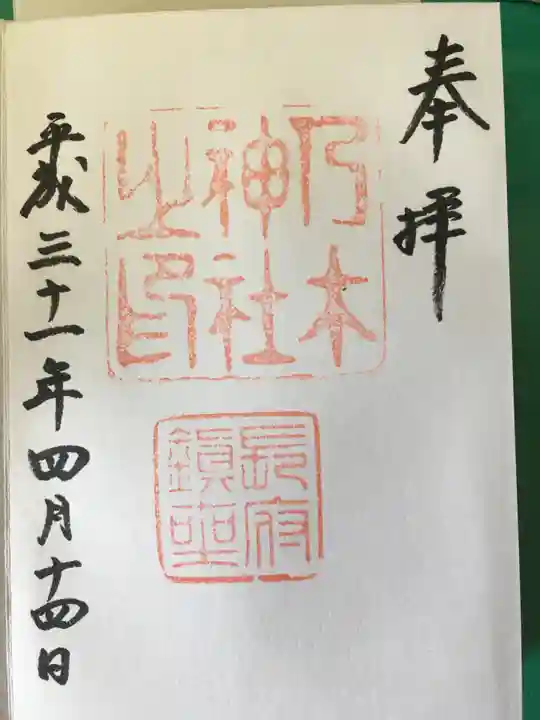 奉拝
乃木
神社
之印
長府
鎮座
平成三十一年四月十四日